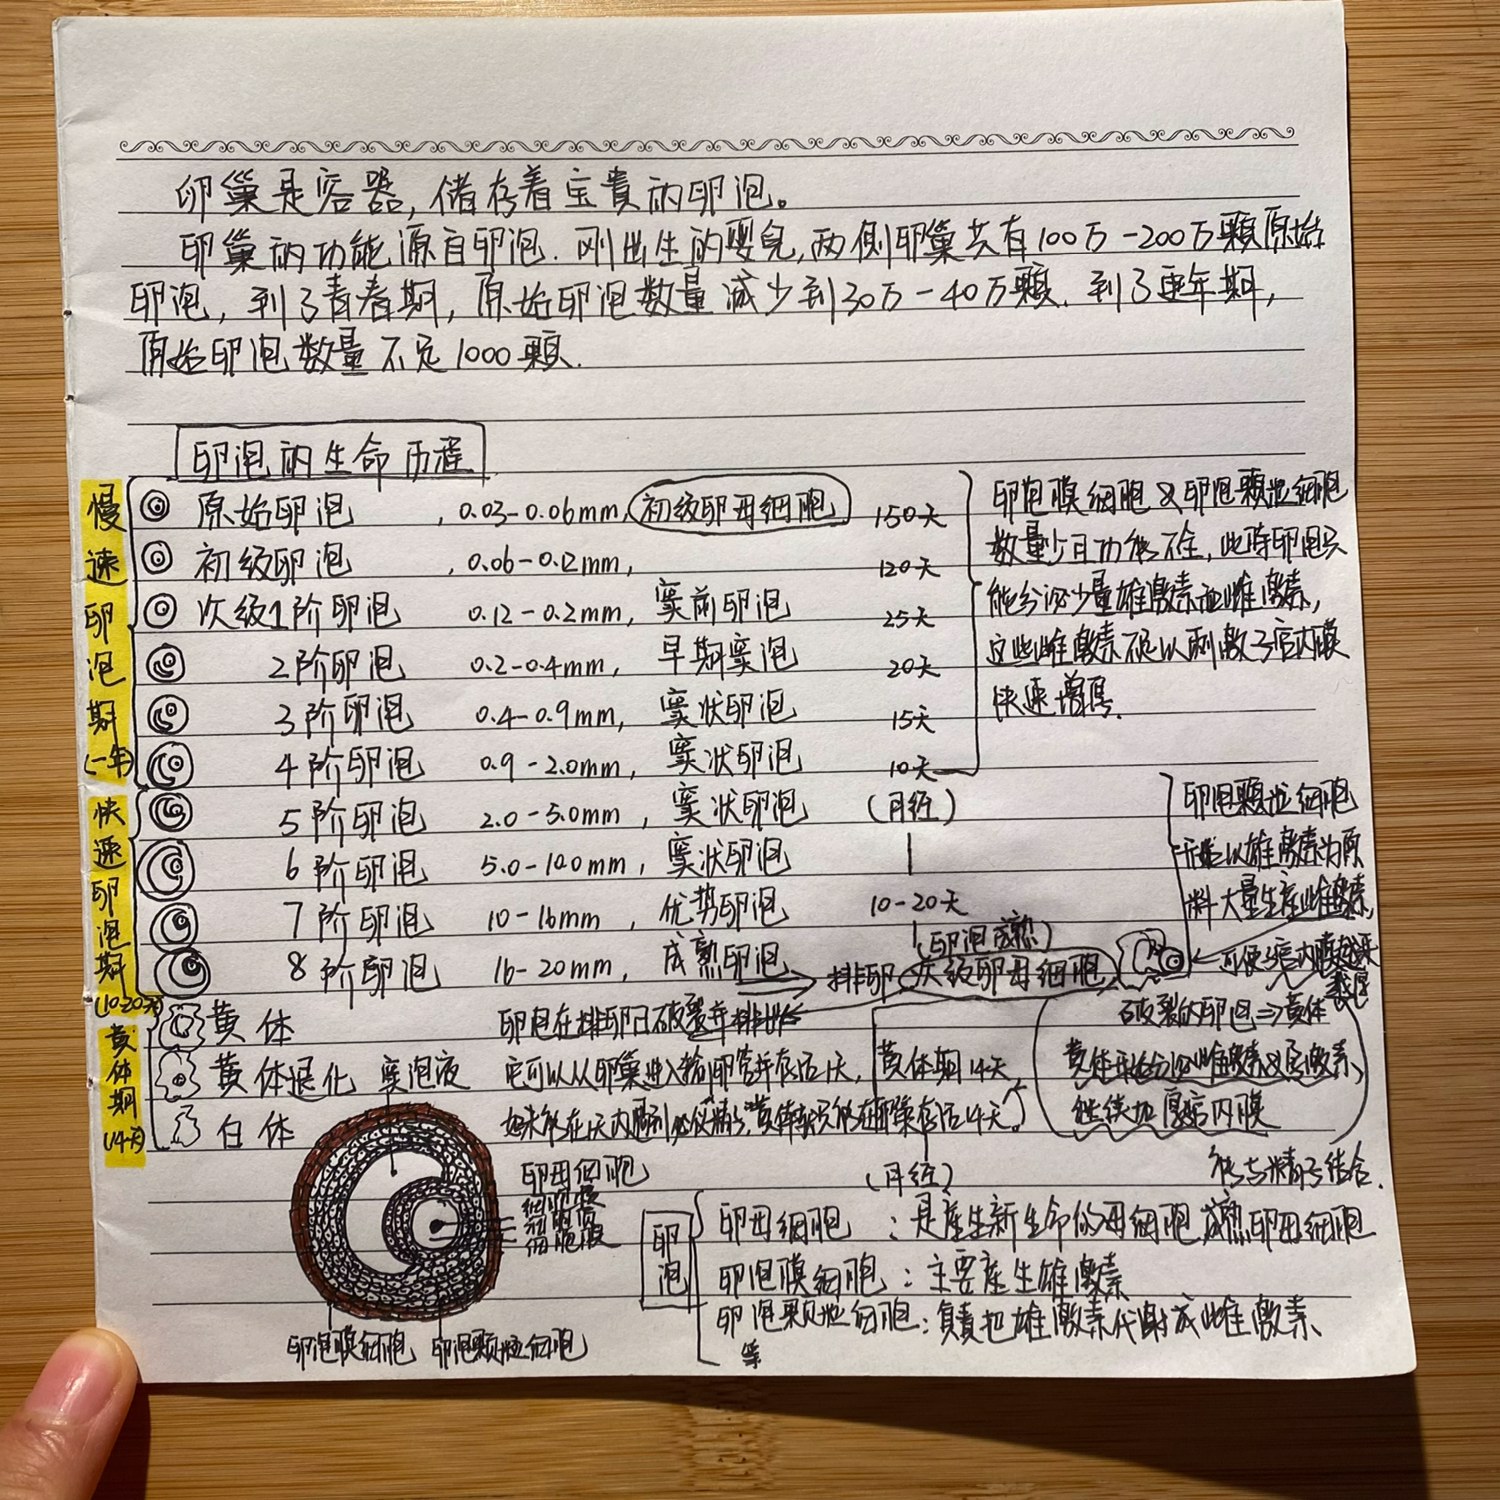 卵巢是容器，储存着宝贵的卵泡。
卵巢的功能源自卵泡. 刚出生的婴儿,两侧卵巢共有100万-200万颗原始
卵泡，到了青春期，原始卵泡数量减少到30万-40万颗. 到了更年期，
原始卵泡数量不足1000颗.
卵泡的生命历程
慢速卵泡期(一年)
原始卵泡，0.03-0.06mm, 初级卵母细胞 150天
初级卵泡，0.06-0.12mm, 120天
次级1阶卵泡 0.12-0.2mm, 窦前卵泡 25天
2阶卵泡 0.2-0.4mm, 早期窦泡 20天
3阶卵泡 0.4-0.9mm, 窦状卵泡 15天
4阶卵泡 0.9-2.0mm, 窦状卵泡 10天
卵泡膜细胞&卵泡颗粒细胞
数量少且功能不全，此时卵泡只
能分泌少量雄激素和雌激素，
这些雌激素不足以刺激子宫内膜
快速增厚.
快速卵泡期(10-20天)
5阶卵泡 2.0-5.0mm, 窦状卵泡 (月经)
6阶卵泡 5.0-10.0mm, 窦状卵泡
7阶卵泡 10-16mm, 优势卵泡 10-20天
(卵泡成熟)
8阶卵泡 16-20mm, 成熟卵泡 排卵 次级卵母细胞
卵泡颗粒细胞
开始以雄激素为原
料大量生产雌激素,
可使子宫内膜越来
黄体期(14天)
黄体 卵泡在排卵日破裂并排出
黄体退化 窦泡液 它可以从卵巢进入输卵管并存活1天, 黄体期14天
白体 如未能在1天内遇到 黄体就只能在卵巢存活14天。
破裂的卵泡⇒黄体
黄体开始分泌雌激素及孕激素,
继续加厚宫内膜
能与精子结合.
(月经)
卵母细胞
细胞核
细胞质
细胞膜
卵泡膜细胞 卵泡颗粒细胞
卵泡
卵母细胞：是产生新生命的母细胞 成熟卵母细胞
卵泡膜细胞：主要产生雄激素
卵泡颗粒细胞：负责把雄激素代谢成雌激素
等